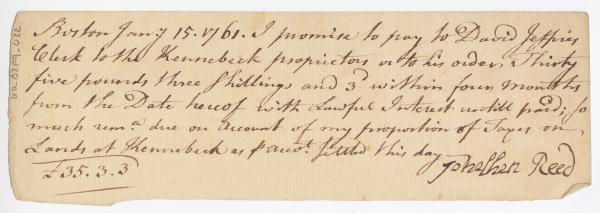 Boston Jany 15. 1761. I promise to pay to David Jeffries
Clerk to the Kennebeck proprietors or to his order, Thirty
five pounds three Shillings and 3d within four months
from the Date hereof with Lawful Interest untill paid; so
much rema. due on account of my proportion of Taxes on
Lands at Kennebeck as p accot. settled this day
£35.3.3
Jonathan Reed